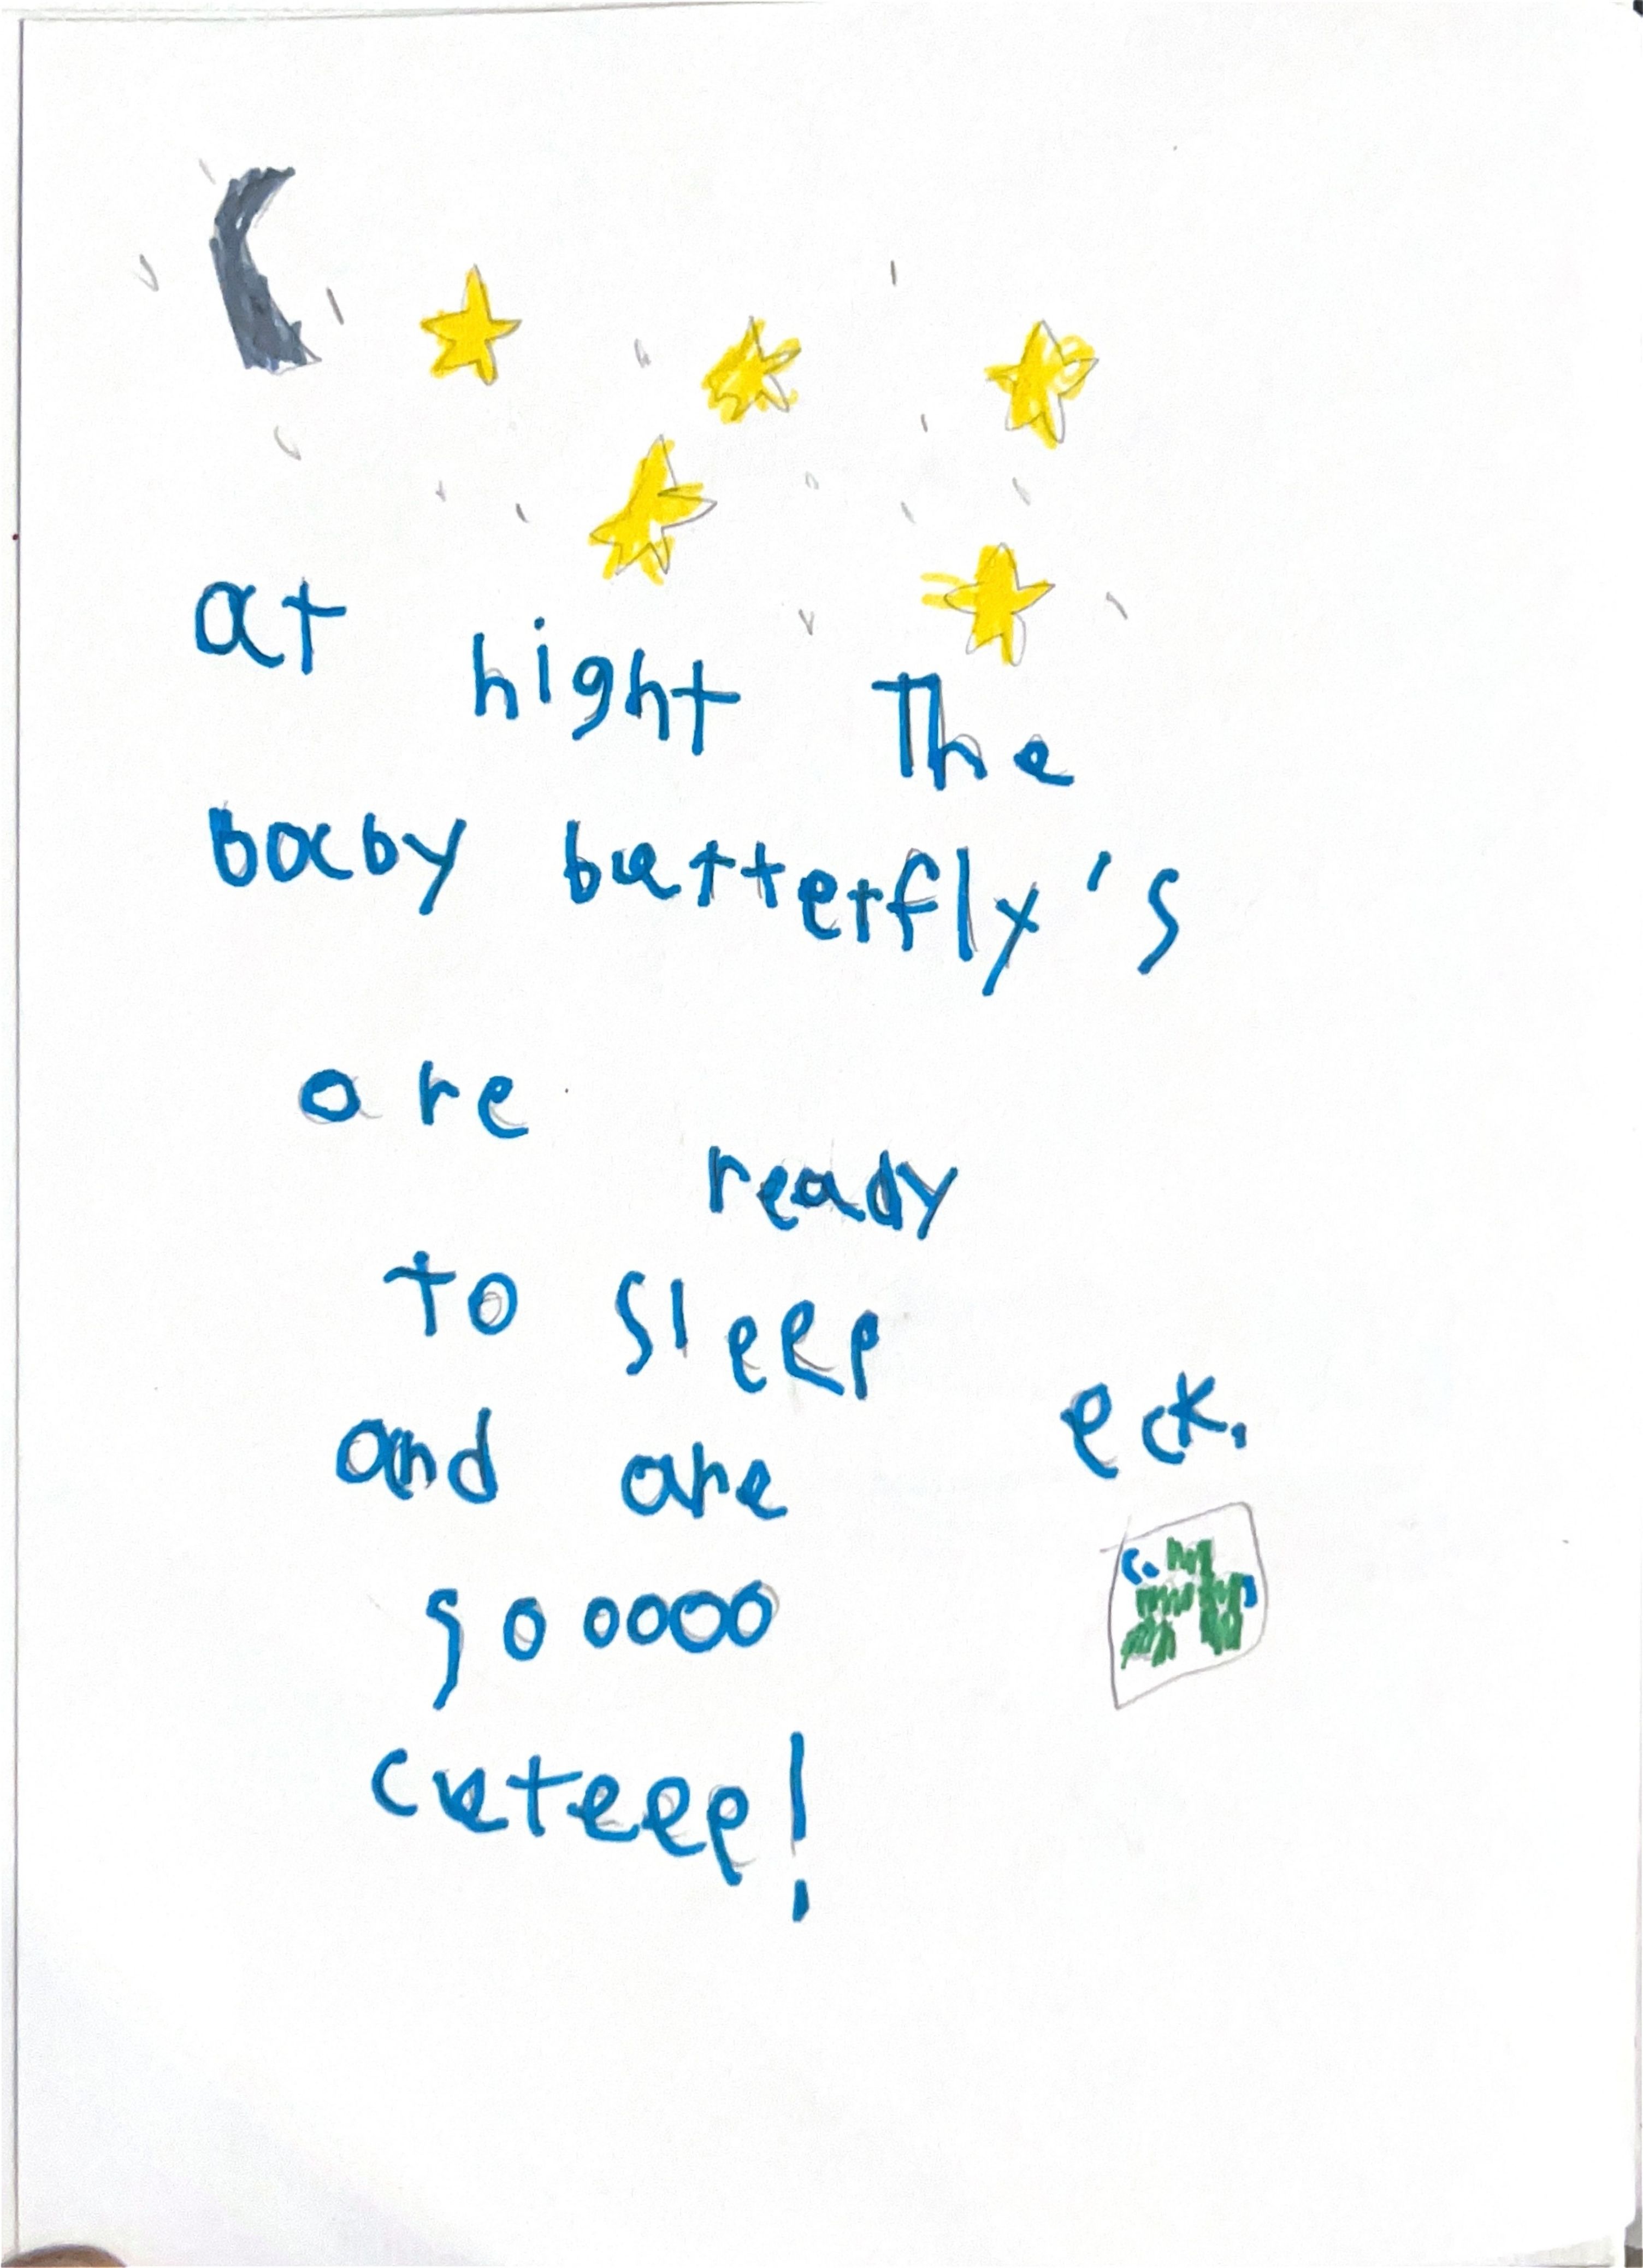 at night the
baby butterfly's
are ready
to sleep
and are
sooooo
cuteee!
eck.